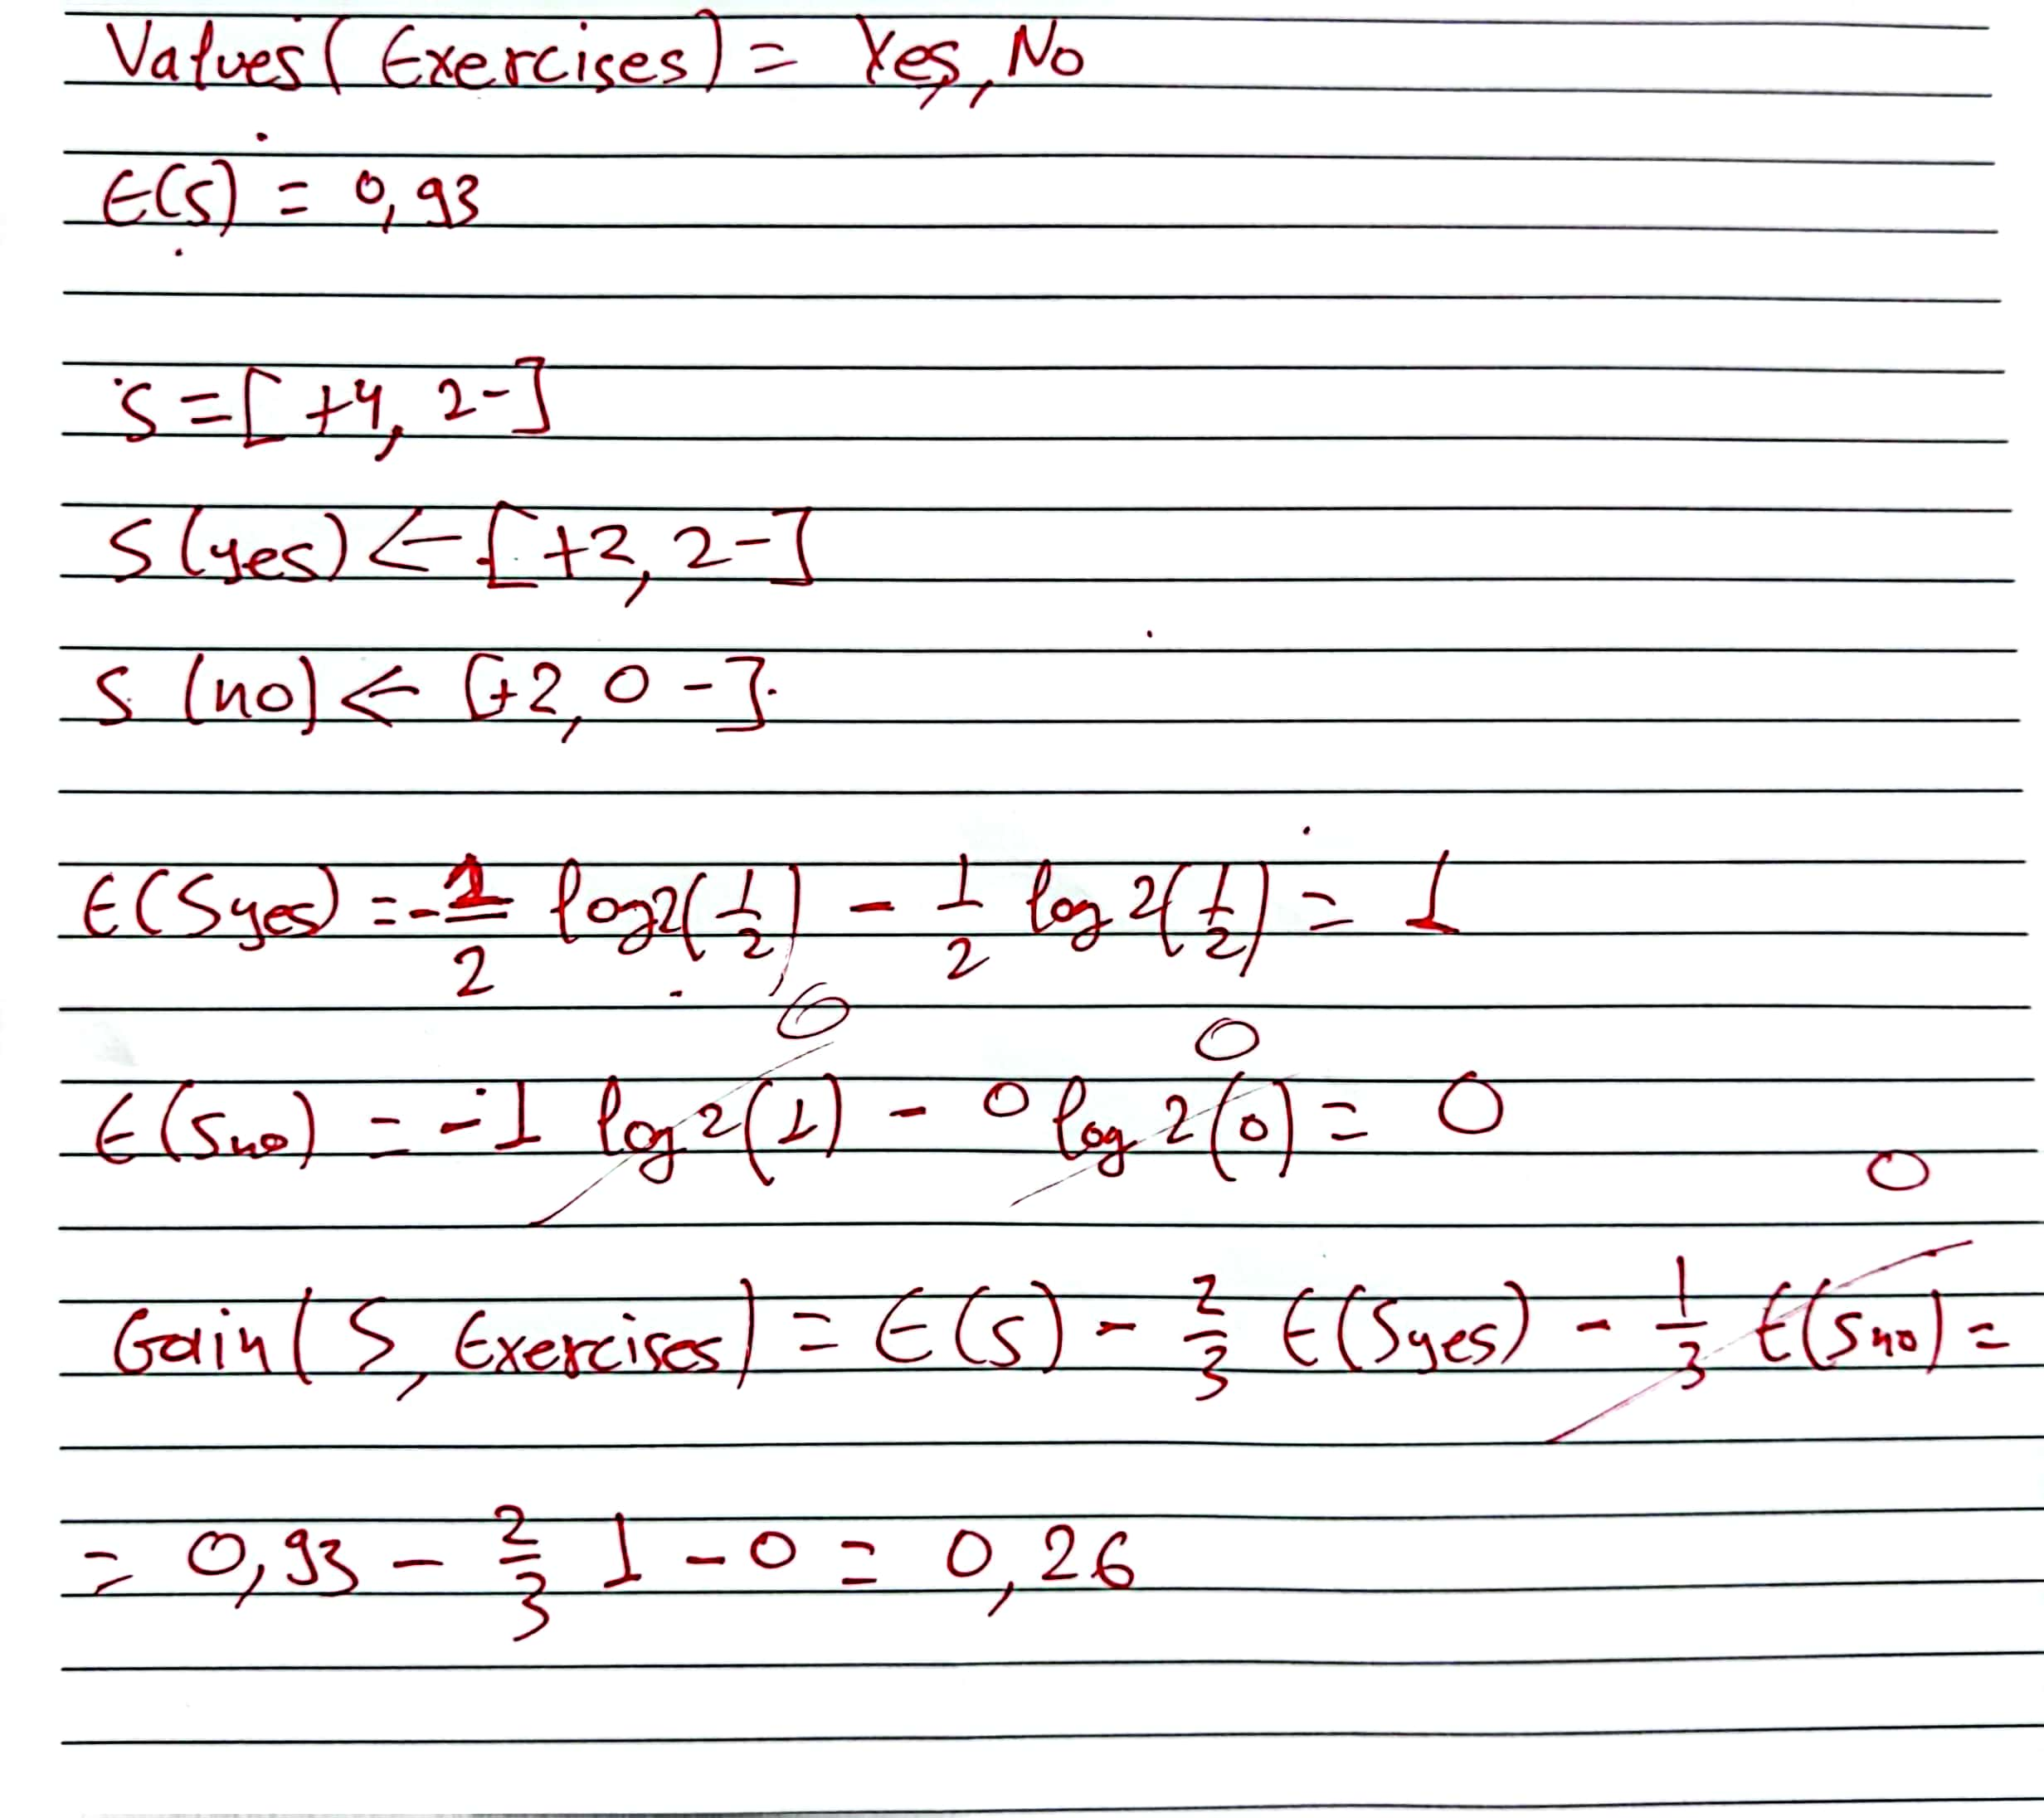 Values(Exercises) = Yes, No
E(S) = 0,93
S = [+4, 2-]
S(yes) ← [+2, 2-]
S(no) ← [+2, 0-]
E(Syes) = -1/2 log2(1/2) - 1/2 log2(1/2) = 1
0 0
E(Sno) = -1 log2(1) - 0 log2(0) = 0
0
Gain(S, Exercises) = E(S) - 2/3 E(Syes) - 1/3 E(Sno) =
= 0,93 - 2/3 1 - 0 = 0,26